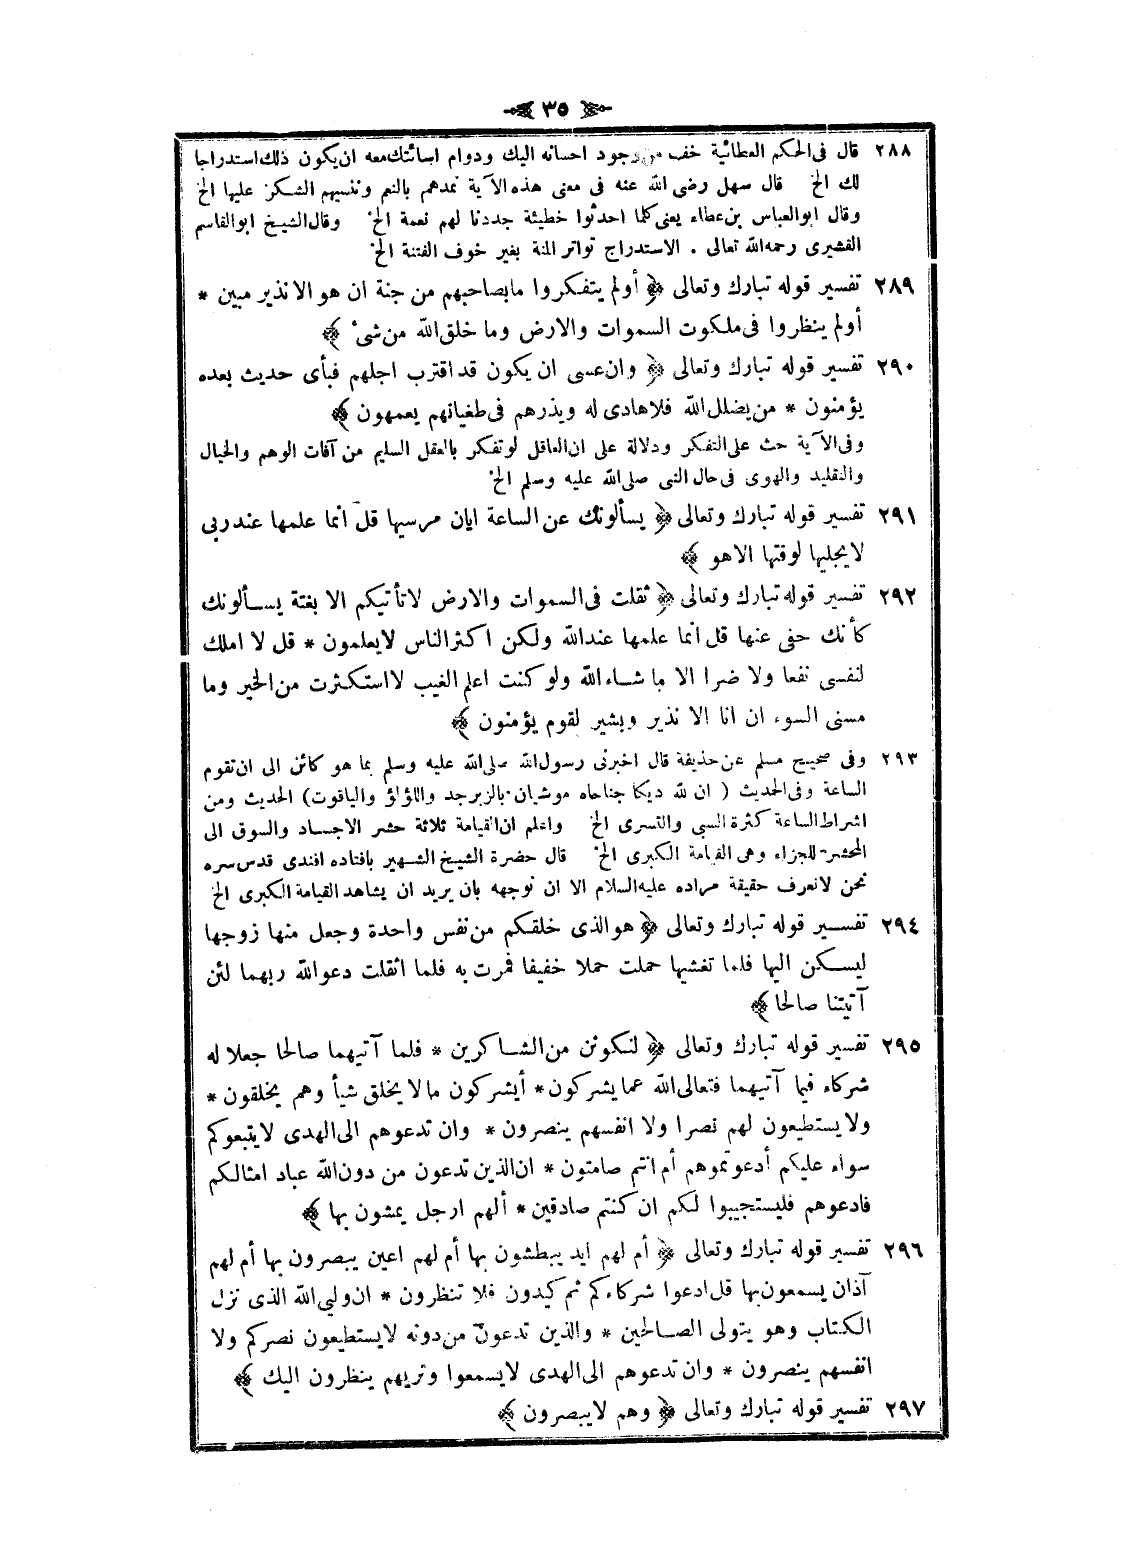 ٣٥
٢٨٨ قال فى الحكم العطائية خف من وجود احسانه اليك ودوام اسائتك معه ان يكون ذلك استدراجا
لك الخ قال سهل رضى الله عنه فى معنى هذه الآية نمدهم بالنعم وننسيهم الشكر عليها الخ
وقال ابوالعباس بن عطاء يعنى كلما احدثوا خطيئة جددنا لهم نعمة الخ وقال الشيخ ابوالقاسم
القشيرى رحمه الله تعالى . الاستدراج تواتر المنة بغير خوف الفتنة الخ
٢٨٩ تفسير قوله تبارك وتعالى ﴿ أولم يتفكروا مابصاحبهم من جنة ان هو الا نذير مبين *
أولم ينظروا فى ملكوت السموات والارض وما خلق الله من شىء ﴾
٢٩٠ تفسير قوله تبارك وتعالى ﴿ وان عسى ان يكون قد اقترب اجلهم فبأى حديث بعده
يؤمنون * من يضلل الله فلاهادى له ويذرهم فى طغيانهم يعمهون ﴾
وفى الآية حث على التفكر ودلالة على ان العاقل لو تفكر بالعقل السليم من آفات الوهم والخيال
والتقليد والهوى فى حال النبى صلى الله عليه وسلم الخ
٢٩١ تفسير قوله تبارك وتعالى ﴿ يسألونك عن الساعة ايان مرسيها قل انما علمها عند ربى
لايجليها لوقتها الا هو ﴾
٢٩٢ تفسير قوله تبارك وتعالى ﴿ ثقلت فى السموات والارض لاتأتيكم الا بغتة يسألونك
كأنك حفى عنها قل انما علمها عندالله ولكن اكثر الناس لايعلمون * قل لا املك
لنفسى نفعا ولا ضرا الا ما شاء الله ولو كنت اعلم الغيب لااستكثرت من الخير وما
مسنى السوء ان انا الا نذير وبشير لقوم يؤمنون ﴾
٢٩٣ وفى صحيح مسلم عن حذيفة قال اخبرنى رسول الله صلى الله عليه وسلم بما هو كائن الى ان تقوم
الساعة وفى الحديث ( ان لله ديكا جناحاه موشيان بالزبرجد واللؤلؤ والياقوت) الحديث ومن
اشراط الساعة كثرة السبى والتسرى الخ واعلم ان القيامة ثلاثة حشر الاجساد والسوق الى
المحشر للجزاء وهى القيامة الكبرى الخ قال حضرة الشيخ الشهير بافتاده افندى قدس سره
نحن لانعرف حقيقة مراده عليه السلام الا ان نوجهه بان يريد ان يشاهد القيامة الكبرى الخ
٢٩٤ تفسير قوله تبارك وتعالى ﴿ هو الذى خلقكم من نفس واحدة وجعل منها زوجها
ليسكن اليها فلما تغشيها حملت حملا خفيفا فمرت به فلما اثقلت دعوالله ربهما لئن
آتيتنا صالحا ﴾
٢٩٥ تفسير قوله تبارك وتعالى ﴿ لنكونن من الشاكرين * فلما آتيهما صالحا جعلا له
شركاء فيما آتيهما فتعالى الله عما يشركون * أيشركون مالا يخلق شيأ وهم يخلقون *
ولايستطيعون لهم نصرا ولا انفسهم ينصرون * وان تدعوهم الى الهدى لايتبعوكم
سواء عليكم أدعوتموهم أم انتم صامتون * ان الذين تدعون من دون الله عباد امثالكم
فادعوهم فليستجيبوا لكم ان كنتم صادقين * ألهم ارجل يمشون بها ﴾
٢٩٦ تفسير قوله تبارك وتعالى ﴿ أم لهم ايد يبطشون بها أم لهم اعين يبصرون بها أم لهم
آذان يسمعون بها قل ادعوا شركاءكم ثم كيدون فلا تنظرون * ان وليى الله الذى نزل
الكتاب وهو يتولى الصالحين * والذين تدعون من دونه لايستطيعون نصركم ولا
انفسهم ينصرون * وان تدعوهم الى الهدى لايسمعوا وتريهم ينظرون اليك ﴾
٢٩٧ تفسير قوله تبارك وتعالى ﴿ وهم لايبصرون ﴾